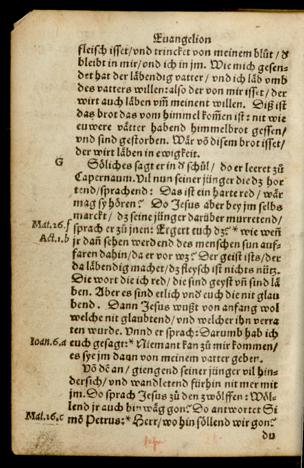 Euangelion
fleisch isset/vnd trincket von meinem blůt/ d
bleibt in mir/ond ich in jm. Wie mich gesen-
det hat der läbendig vatter/ vnd ich läb vmb
des vatters willen: also der von mir isset/ der
wirt auch läben vm̄ meinent willen. Diß ist
das brot das vom himmel kom̄en ist: nit wie
euwere vätter habend himmelbrot gessen/
vnd sind gestorben. Wär vō disem brot isset/
der wirt läben in ewigkeit.
G Söliches sagt er in d schůl/ do er leeret zů
Capernaum. Vil nun seiner jünger die dz hor
tend/sprachend: Das ist ein harte red/ wär
mag sy hören? Do Jesus aber bey jm selbs
marckt/ dz seine jünger darüber murretend/
Mat.26.f sprach er zů jnen: Ergert euch dz? * wie weñ
Act.1.b jr dañ sehen werdend des menschen sun auf-
faren dahin/da er vor wz? Der geist ists/der
da läbendig machet/dz fleysch ist nichts nütz.
Die wort die ich red/ die sind geyst vñ sind lä
ben. Aber es sind etlich vnd euch die nit glau
bend. Dann Jesus wußt von anfang wol
welche nit glaubtend/ vnd welcher ihn verra
ten wurde. Vnnd er sprach: Darumb hab ich
Ioan.6.a euch gesagt:* Niemant kan zů mir kommen/
es sye jm dann von meinem vatter geben.
Vō dē an/ giengend seiner jünger vil hin-
dersich/ vnd wandletend fürhin nit mer mit
jm. Do sprach Jesus zů den zwölffen: Wöl-
lend jr auch hinwäg gon? Do antwortet Si
Mat.16.c mō Petrus:* Herr/ wo hin söllend wir gon?
du